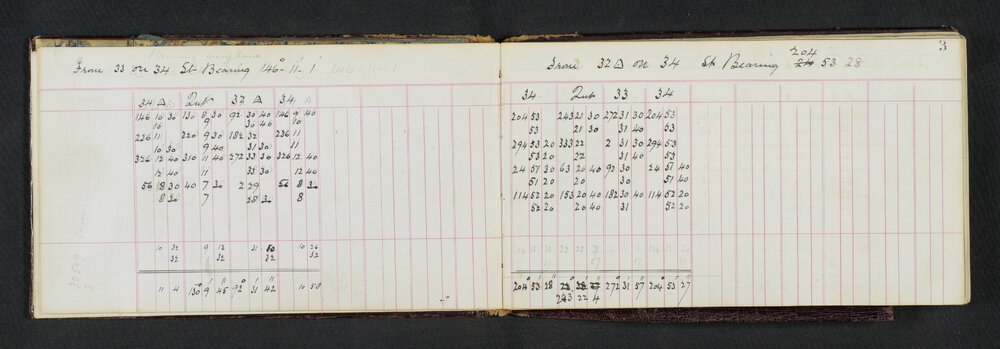 From 33 on 34 St Bearing 146° 11' 1
34 △ Int 37 △ 34 △
146 10 30 130 8 30 92 30 40 146 9 40
10 9 30 40 10
236 11 220 9 30 182 32 236 11
10 30 9 40 31 30 11
326 12 40 310 11 40 272 33 30 326 12 40
12 40 11 33 30 12 40
56 18 30 40 7 30 2 29 56 8 30
8 30 7 28 30 8
10 32 9 12 31 50 10 26
32 32 32 32
11 4 130° 9' 45" 92° 31' 42" 10 58
3
204
From 32 △ on 34 St Bearing 24 53 28
34 Int 33 34
204 53 243 21 30 272 31 30 204 53
53 21 30 31 40 53
294 53 20 333 22 2 31 30 294 53
53 20 22 31 40 53
24 51 30 63 20 40 92 30 24 51 40
51 20 20 30 51 40
114 52 20 153 20 40 182 30 40 114 52 20
52 20 20 40 31 52 20
204° 53' 28" 272° 31' 57" 204° 53' 27"
243 22 4